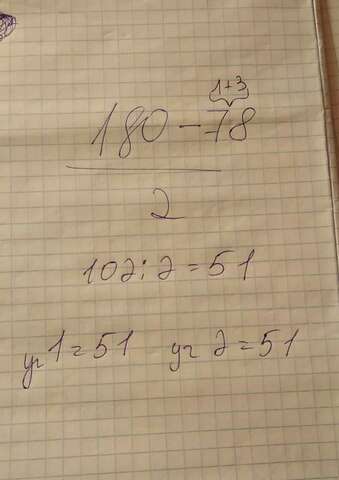 1+3
180-78
2
102:2=51
уг1=51 уг2=51